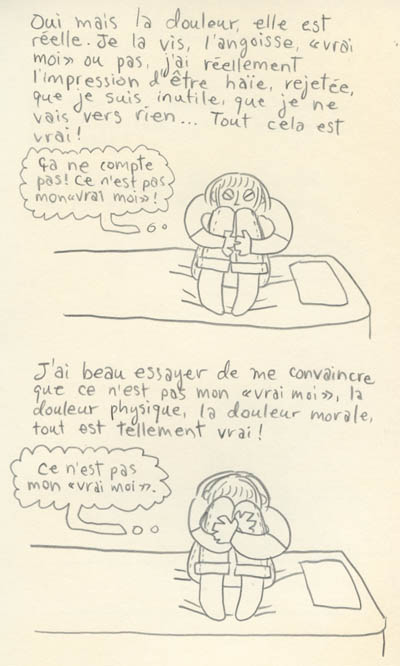 Oui mais la douleur, elle est
réelle. Je la vis, l'angoisse, «vrai
moi» ou pas, j'ai réellement
l'impression d'être haïe, rejetée,
que je suis inutile, que je ne
vais vers rien... Tout cela est
vrai!
ça ne compte
pas! Ce n'est pas
mon «vrai moi»!
J'ai beau essayer de me convaincre
que ce n'est pas mon «vrai moi», la
douleur physique, la douleur morale,
tout est tellement vrai!
Ce n'est pas
mon «vrai moi».